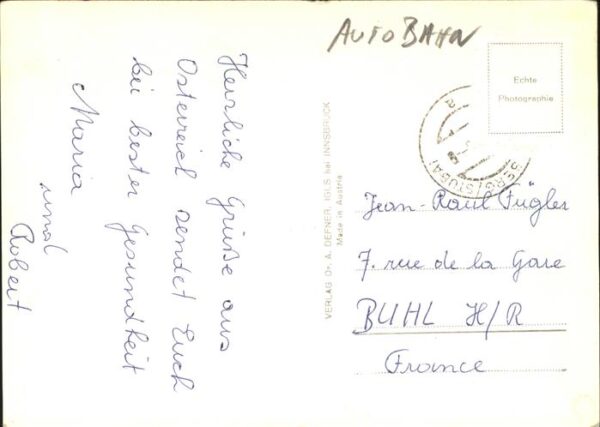 AUTOBAHN
Echte
Photographie
Herzliche Grüße aus
Österreich sendet Euch
bei bester Gesundheit
Maria
und
Robert
VERLAG Dr. A. DEFNER, IGLS bei INNSBRUCK
Made in Austria
Jean-Paul Fügler
7. rue de la Gare
BUHL H/R
France